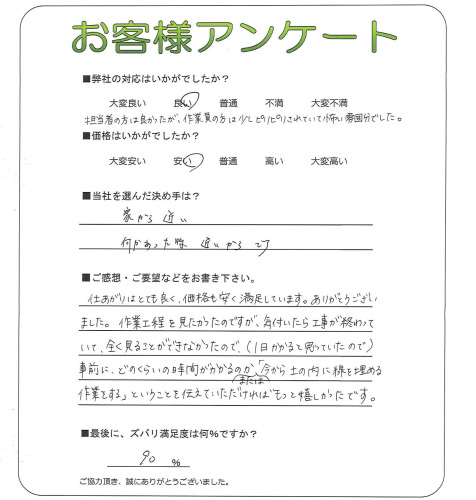 お客様アンケート
■弊社の対応はいかがでしたか？
大変良い 良い 普通 不満 大変不満
担当者の方は良かったが、作業員の方は少しピリピリされていて怖い雰囲気でした。
■価格はいかがでしたか？
大変安い 安い 普通 高い 大変高い
■当社を選んだ決め手は？
家から近い
何かあった時近いからです
■ご感想・ご要望などをお書き下さい。
仕あがりはとても良く、価格も安く満足しています。ありがとうござい
ました。作業工程を見たかったのですが、気付いたら工事が終わって
いて、全く見ることができなかったので、（1日かかると思っていたので）
事前に、どのくらいの時間がかかるのか、「今から土の内に線を埋める
または
作業をする」ということを伝えていただければもっと嬉しかったです。
■最後に、ズバリ満足度は何%ですか？
90 %
ご協力頂き、誠にありがとうございました。